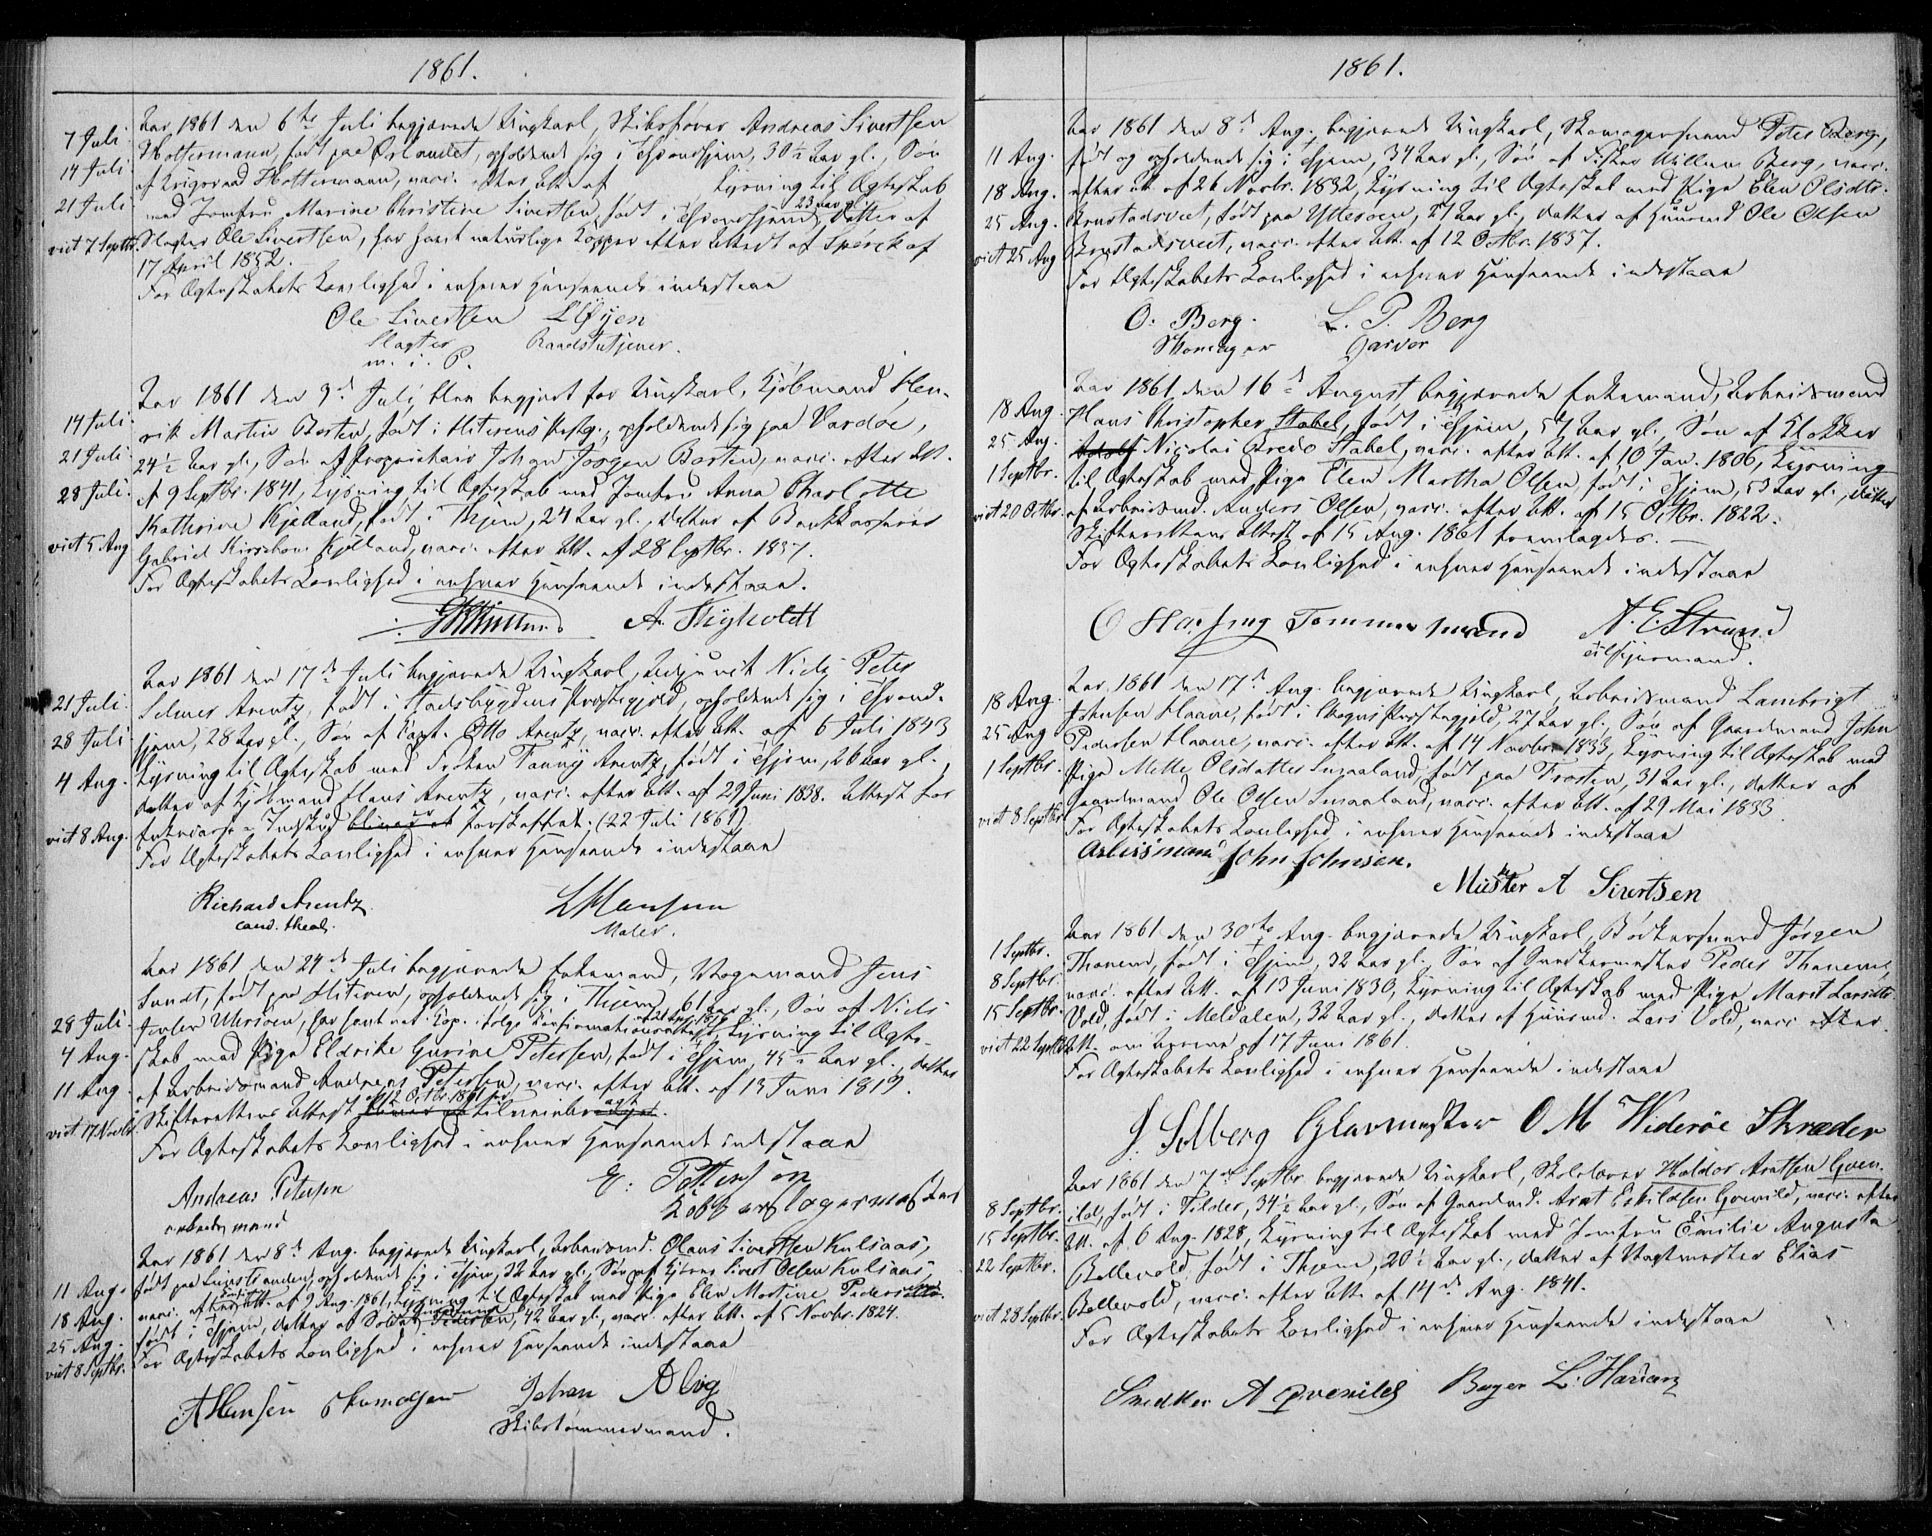 1861.
7 Juli.
14 Juli
21 Juli
viet 7 Septbr.
Aar 1861 den 6te Juli begjærede Ungkarl, Skibsfører Andreas Sivertsen
Hottermann, født paa Ørlandet, opholdende sig i Trondhjem, 30½ Aar gl., Søn
af Krigsraad Hottermann, vacc. efter Att. af Lysning til Ægteskab
med Jomfru Marine Christine Sivertsen, født i Trondhjem, 23 Aar gl. Datter af
Slagter Ole Sivertsen, har havt naturlige Kopper efter Attest af Lørck af
17 April 1852.
For Ægteskabets Lovlighed i enhver Henseende indestaae
Ole Sivertsen L Øyen
Slagter Raadstutjener.
m. i. P.
14 Juli.
21 Juli
28 Juli.
viet 5 Aug
Aar 1861 den 9d Juli blev begjert for Ungkarl, Kjøbmand Hen-
rik Martin Borten, født i Hiterens Prstg., opholdende sig paa Vardøe,
24½ Aar gl., Søn af Proprietair Johan Jørgen Borten, vacc. efter Att.
af 9 Septbr. 1841, Lysning til Ægteskab med Jomfru Anna Charlotte
Kathrine Kjelland, født i Thjem, 24 Aar gl., Datter af Bankkasserer
Gabriel Kirsebom Kjelland, vacc. efter Att. af 28 Septbr. 1837.
For Ægteskabets Lovlighed i enhver Henseende indestaae.
21 Juli.
28 Juli
4 Aug.
viet 8 Aug.
Aar 1861 den 17d Juli begjærede Ungkarl, Niels Peter
Selmer Arentz, født i Stadsbygdens Præstegjeld, opholdende sig i Trond-
hjem, 28 Aar gl., Søn af Capt. Otto Arentz, vacc. efter Att. af 6 Juli 1843
Lysning til Ægteskab med Frøken Fanny Arentz, født i Thjem, 26 Aar gl.,
Datter af Kjøbmand Hans Arentz, vacc. efter Att. af 29 Juni 1838. Attest for
Enkecasse-Indskud forskaffet. (22 Juli 1861)
For Ægteskabets Lovlighed i enhver Henseende indestaae
Richard Arentz L Hansen
cand. theol. Maler.
28 Juli.
4 Aug.
11 Aug.
viet 17 Novbr.
Aar 1861 den 24de Juli begjærede Enkemand, Vognmand Jens
Sundt, født paa Hiteren, opholdende sig i Thjem, 61 Aar gl., Søn af Niels
skab med Pige Eldrike Gurine Petersen, født i Thjem, 45½ Aar gl., Datter
af Arbeidsmand Andreas Petersen, vacc. efter Att. af 13 Juni 1819.
Skifterettens Attest af 12 Octbr. 1861 er tilveiebragt.
For Ægteskabets Lovlighed i enhver Henseende indestaae
Andreas Petersen E: Pettersen
arbeidsmand Kobberslagermester
11 Aug.
18 Aug.
25 Aug.
viet 8 Septbr.
Aar 1861 den 8d Aug. begjærede Ungkarl, Arbeidsmd. Olaus Sivertsen Kulsaas,
født paa Leinstranden, opholdende sig i Thjem, 32 Aar gl., Søn af Sivert Olsen Kulsaas,
vacc. efter Att. af 9 Aug. 1861, Lysning til Ægteskab med Pige Elen Martine Pedersen
født i Thjem, Datter af Soldat Pedersen, 42 Aar gl., vacc. efter Att. af 5 Novbr. 1824.
For Ægteskabets Lovlighed i enhver Henseende indestaae
A Hansen Skomager Johan Alvig
Skibstømmermand.
1861.
11 Aug.
18 Aug.
25 Aug.
viet 25 Aug
Aar 1861 den 8d Aug. begjærede Ungkarl, Skomagersvend Peter Berg,
født og opholdende sig i Thjem, 34 Aar gl., Søn af Fisker Willum Berg, vacc.
efter Att. af 26 Novbr. 1832, Lysning til Ægteskab med Pige Elen Olsdtr.
født paa Ytterøen, 27 Aar gl., Datter af Huusmd. Ole Olsen
vacc. efter Att. af 12 Octbr. 1837.
For Ægteskabets Lovlighed i enhver Henseende indestaae
O. Berg. L. P. Berg
Skomager Garver
18 Aug.
25 Aug.
1 Septbr.
viet 20 Octbr.
Aar 1861, den 16d August begjærede Enkemand, Arbeidsmand
Hans Christopher Stabel, født i Thjem, 57 Aar gl., Søn af Klokker
Adolf Nicolai Bredo Stabel, vacc. efter Att. af 10 Jan. 1806, Lysning
til Ægteskab med Pige Elen Martha Olsen, født i Thjem, 53 Aar gl., Datter
af Arbeidsmd. Anders Olsen, vacc. efter Att. af 15 Octbr. 1822.
Skifterettens Attest af 15 Aug. 1861 fremlagdes.
For Ægteskabets Lovlighed i enhver Henseende indestaae
Tommermand A. E. Strand
18 Aug.
25 Aug
1 Septbr.
viet 8 Septbr
Aar 1861 den 17d Aug. begjærede Ungkarl, Arbeidsmand Lambrigt
Johnsen Haave, født i Præstegjeld, 27 Aar gl., Søn af Gaardmand John
Pedersen Haave, vacc. efter Att. af 14 Novbr. 1833, Lysning til Ægteskab med
Pige Mette Olsdatter Smaaland, født paa Frosten, 31 Aar gl., Datter af
Gaardmand Ole Olsen Smaaland, vacc. efter Att. af 29 Mai 1833.
For Ægteskabets Lovlighed i enhver Henseende indestaae
Arbeismand John Johnsen.
A Sivertsen
1 Septbr.
8 Septbr.
15 Septbr.
viet 22 Septbr.
Aar 1861 den 30te Aug. begjærede Ungkarl, Bødkersvend Jørgen
Thanem, født i Thjem, 32 Aar gl., Søn af Peder Thanem,
vacc. efter Att. af 13 Juni 1830, Lysning til Ægteskab med Pige Marit Larsdtr.
Vold, født i Meldalen, 32 Aar gl., Datter af Huusmd. Lars Vold, vacc. efter
Att. af 17 Juni 1861.
For Ægteskabets Lovlighed i enhver Henseende indestaae
J. Solberg Glarmester O M Widerøe Skræder
8 Septbr.
15 Septbr.
22 Septbr.
viet 28 Septbr.
Aar 1861 den 7d Septbr. begjærede Ungkarl, Skolelærer Haldor Arntsen Qven-
ild, født i Tilder, 34½ Aar gl., Søn af Gaardmd. Arnt Eskildsen Qvenild, vacc. efter
Att. af 6 Aug. 1828, Lysning til Ægteskab med Jomfru Emilie Augusta
Bollevold, født i Thjem, 20½ Aar gl., Datter af Vagtmester Elias
Bollevold, vacc. efter Att. af 14de Aug. 1841.
For Ægteskabets Lovlighed i enhver Henseende indestaae
Snedker A Qvenild Bager L. Hansen